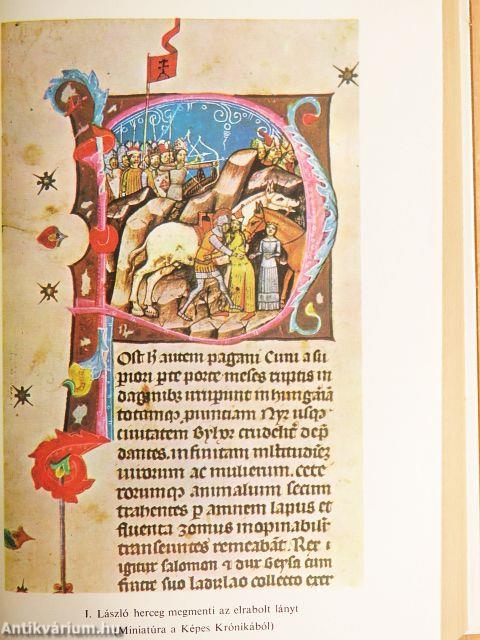 Ost h autem pagani Cuni a su
piori pte porte meses ruptis in
daginibz irrupunt in hungaiam
totamqz puintiam Nyr usqz
civitatem Byhor crudelit dep
dantes, in finitam mltitudinez
uirorum ac mulierum, cete
rorumqz animalium secum
trahentes p amnem lapus et
fluenta zomus inopinabilit
transeuntes remeabant. Rex
igitur salomon & dux Geysa cum
fratre suo ladizlao collecto exer
I. László herceg megmenti az elrabolt lányt
(Miniatúra a Képes Krónikából)
Antikvárium.hu